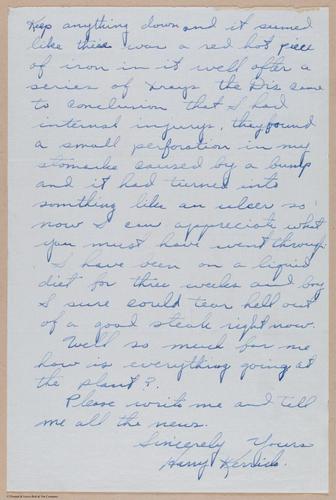 Keep anything down and it sumed
like thier was a red hot piece
of iron in it well after a
series of Xrays the Drs came
to conclusion that I had
internal injurys, they found
a small perforation in my
stomacke caused by a bump
and it had turned into
somthing like an ulcer so
now I can appreciate what
you must have went through.
I have been on a liquid
diet for three weeks and boy
I sure could tear hell out
of a good steak right now.
Well so much for me
how is everything going at
the plant?
Please write me and tell
me all the news.
Sincerely Yours
Harry